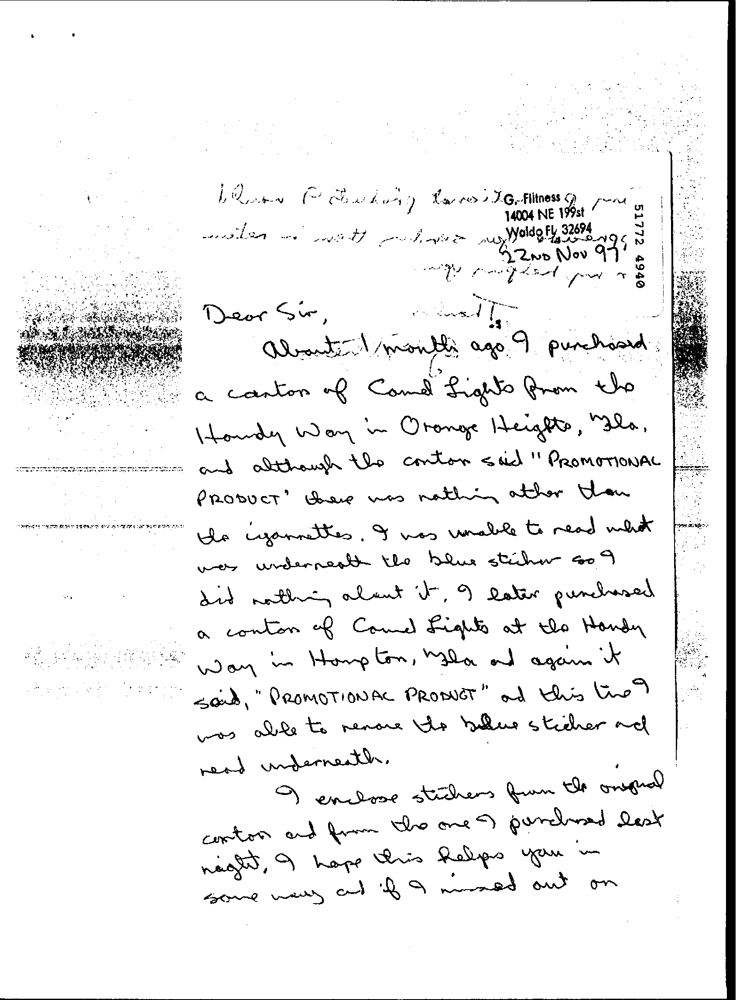 G. Flitness
14004 NE 199st
Waldo FL 32694
22ND NOV 97
51772 4940
Dear Sir,
About 1 month ago I purchased
a carton of Camel Lights from the
Handy Way in Orange Heights, Fla,
and although the carton said "PROMOTIONAL
PRODUCT" there was nothing other than
the cigarettes. I was unable to read what
was underneath the blue sticker so I
did nothing about it, I later purchased
a carton of Camel Lights at the Handy
Way in Hampton, Fla and again it
said, "PROMOTIONAL PRODUCT" and this time I
was able to remove the blue sticker and
read underneath.
I enclose stickers from the original
carton and from the one I purchased last
night, I hope this helps you in
some way and if I missed out on